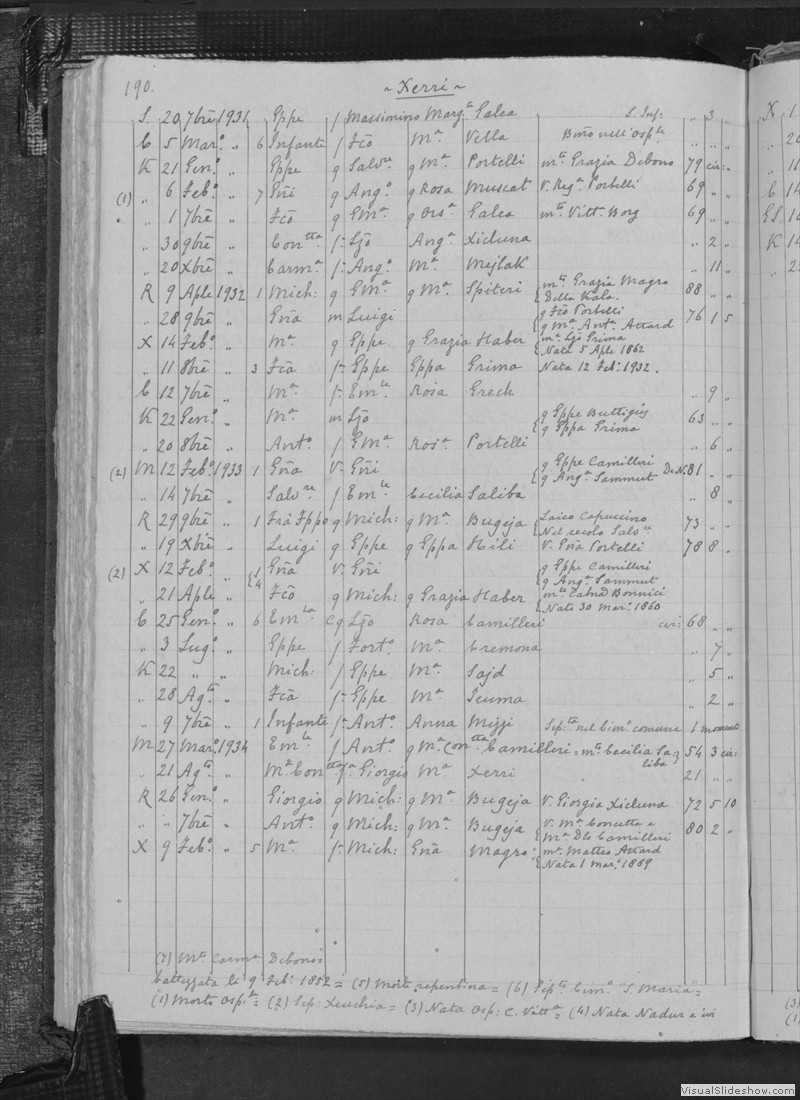 190.
~ Xerri ~
S. 20 7bre 1931 Eppe f Massimino Marg.a Galea S. Inf: ,, 3 ,,
C 5 Mar.o ,, 6 Infante f Fco M.a Vella Bino nell'Osp.le ,, ,, ,,
K 21 Gen.o ,, Eppe q Salv.re q M.a Portelli m.to Grazia Debono 79 cir:
(1) ,, 6 Feb.o ,, 7 Gni q Ang.o q Rosa Muscat V. Reg.a Portelli 69 ,, ,,
,, 1 7bre ,, Fco q GM.a q Ors.a Galea m.to Vitt.a Borg 69 ,, ,,
,, 30 9bre ,, Con.tta f Ljo Ang.a Xicluna ,, 2 ,,
,, 20 Xbre ,, Carm.a f Ang.o M.a Mejlak ,, 11 ,,
R 9 Aple 1932 1 Mich: q GM.a q M.a Spiteri { m.to Grazia Magro Della Kala. 88 ,, ,,
,, 28 9bre ,, Gna m Luigi { q Fco Portelli q M.a Ant.a Attard 76 1 5
X 14 Feb.o ,, M.a q Eppe q Grazia Haber { m.a Ljo Grima Nata 5 Aple 1862
,, 11 8bre ,, 3 Fca f Eppe Eppa Grima Nata 12 Feb.o 1932.
C 12 7bre ,, M.a f Em.le Rosa Grech ,, 9 ,,
K 22 Gen.o ,, M.a m Ljo { q Eppe Buttigieg q Eppa Grima 63 ,, ,,
,, 20 8bre ,, Ant.o f GM.a Ros.a Portelli ,, 6 ,,
(2) M 12 Feb.o 1933 1 Gna V. Gni { q Eppe Camilleri q Ang.a Sammut De N. 81 ,, ,,
,, 14 7bre ,, Salv.re f Em.le Cecilia Saliba ,, 8 ,,
R 29 9bre ,, 1 Fra Fppo q Mich: q M.a Bugeja { Laico Capuccino Nel secolo Salv.re 73 ,, ,,
,, 19 Xbre ,, Luigi q Eppe q Eppa Hili V. Gna Portelli 78 8 ,,
(2) X 12 Feb.o ,, { 1 4 Gna V. Gni { q Eppe Camilleri q Ang.a Sammut
,, 21 Aple ,, Fco q Mich: q Grazia Haber { m.to Catna Bonnici Nato 30 Mar.o 1860
C 25 Gen.o ,, 6 Em.la cq Ljo Rosa Camilleri cir: 68 ,, ,,
,, 3 Lug.o ,, Eppe f Fort.o M.a Cremona ,, 7 ,,
K 22 ,, ,, Mich: f Eppe M.a Sajd ,, 5 ,,
,, 28 Ag.to ,, Fca f Eppe M.a Scuma ,, 2 ,,
,, 9 7bre ,, 1 Infante f Ant.o Anna Mizzi Sep.to nel Cim.o comune 1 momenti
M 27 Mar.o 1934 Em.le f Ant.o q M.a Con.tta Camilleri = m.to Cecilia Saliba 54 3 cir:
,, 21 Ag.to ,, M.a Con.tta f Giorgio M.a Xerri 21 ,, ,,
R 26 Gen.o ,, Giorgio q Mich: q M.a Bugeja V. Giorgia Xicluna 72 5 10
,, ,, 7bre ,, Ant.o q Mich: q M.a Bugeja { V. M.a Concetta e M.a Dta Camilleri 80 2 ,,
X 9 Feb.o ,, 5 M.a f Mich: Gna Magro { m.a Matteo Attard Nata 1 mar.o 1889
(7) M.a Carm.a Debono =
battezzata li 9 Feb.o 1852 = (5) Morte repentina = (6) Sep.to Cim.o "S. Maria" =
(1) Morto Osp.le = (2) Sep: Xeuchia = (3) Nata Osp: C. Vitt.a = (4) Nata Nadur e ivi
VisualSlideshow.com